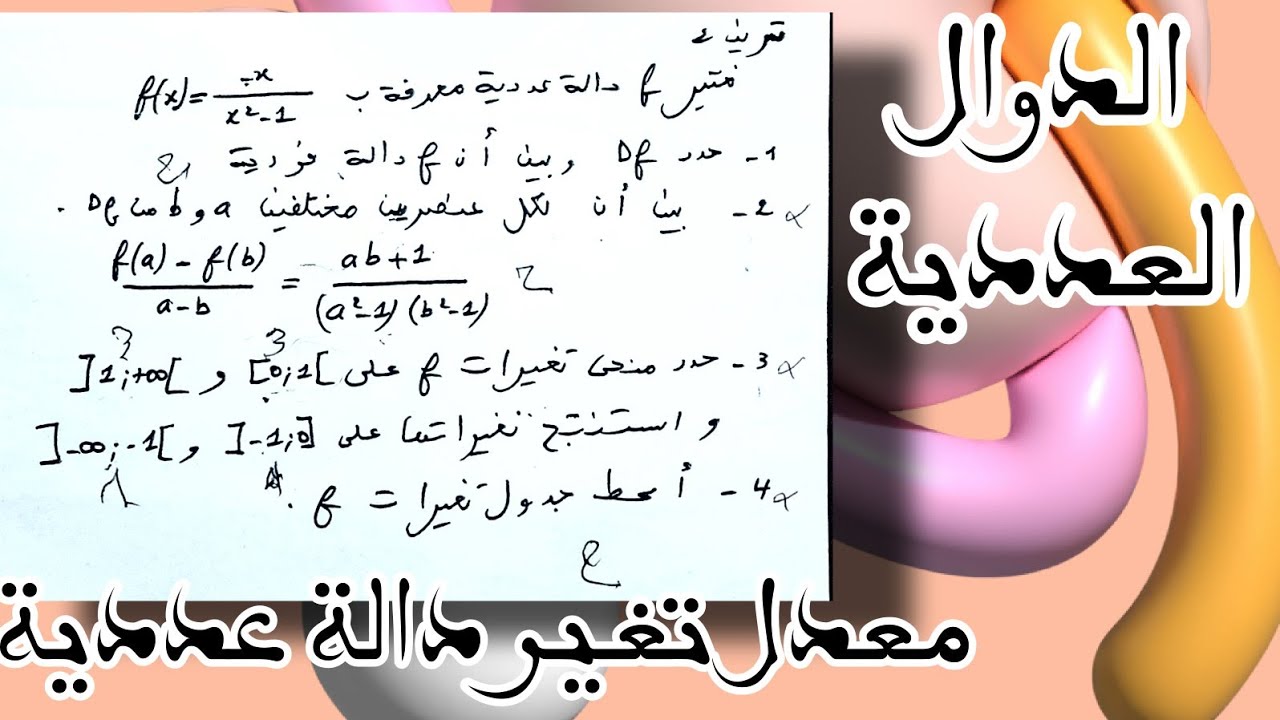 الدوال
العددية
تمرين 2
نعتبر f دالة عددية معرفة ب f(x) = -x / x² - 1
1 - حدد Df وبين أن f دالة فردية
2 - بين أن لكل عنصرين مختلفين a و b من Df .
f(a) - f(b) / a - b = ab + 1 / (a² - 1)(b² - 1)
3 - حدد منحى تغيرات f على [0;1[ و ]1;+∞[
و استنتج تغيراتها على ]-1;0] و ]-∞;-1[
4 - أعط جدول تغيرات f .
معدل تغير دالة عددية